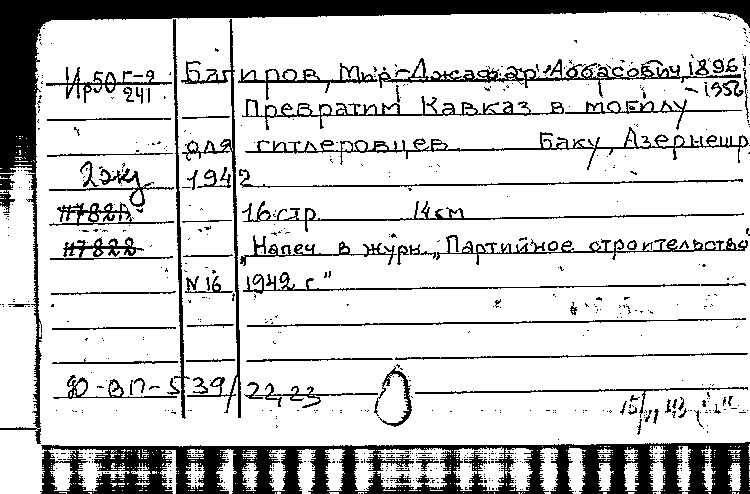 Ир50 г-9/241 Багиров, Мир-Джафар Аббасович, 1896
-1956
Превратим Кавказ в могилу
для гитлеровцев Баку, Азернешр
2 экз 1942
И7821 16 стр 14 см
И7822 „Напеч. в журн. „Партийное строительство"
N 16 1942 г."
Ф-ВП-539/22,23